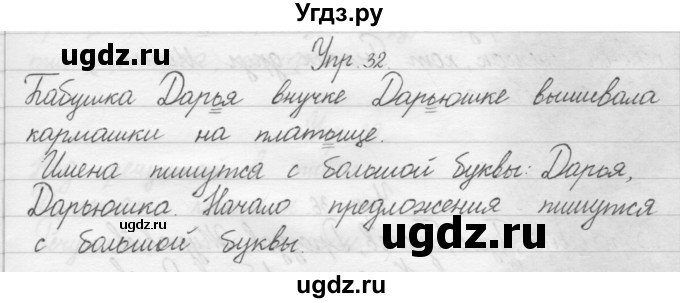 Угдз.ру
Упр. 32.
Бабушка Дарья внучке Дарьюшке вышивала
кармашки на платьице.
Имена пишутся с большой буквы: Дарья,
Дарьюшка. Начало предложения пишутся
с большой буквы.
ugdz.ru
ugdz.ru
ugdz.ru
ugdz.ru
ugdz.ru
ugdz.ru